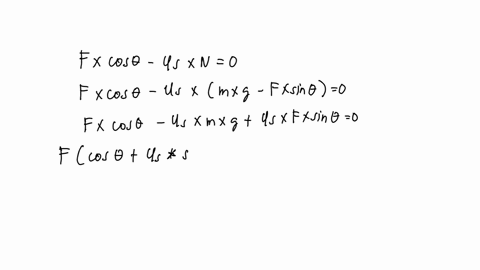 F x cosθ - μs x N = 0
F x cosθ - μs x (m x g - F x sinθ) = 0
F x cosθ - μs x m x g + μs x F x sinθ = 0
F (cos θ + μs * s